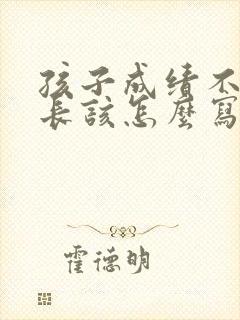 孩子成绩不
长該怎麼寫
霍德明